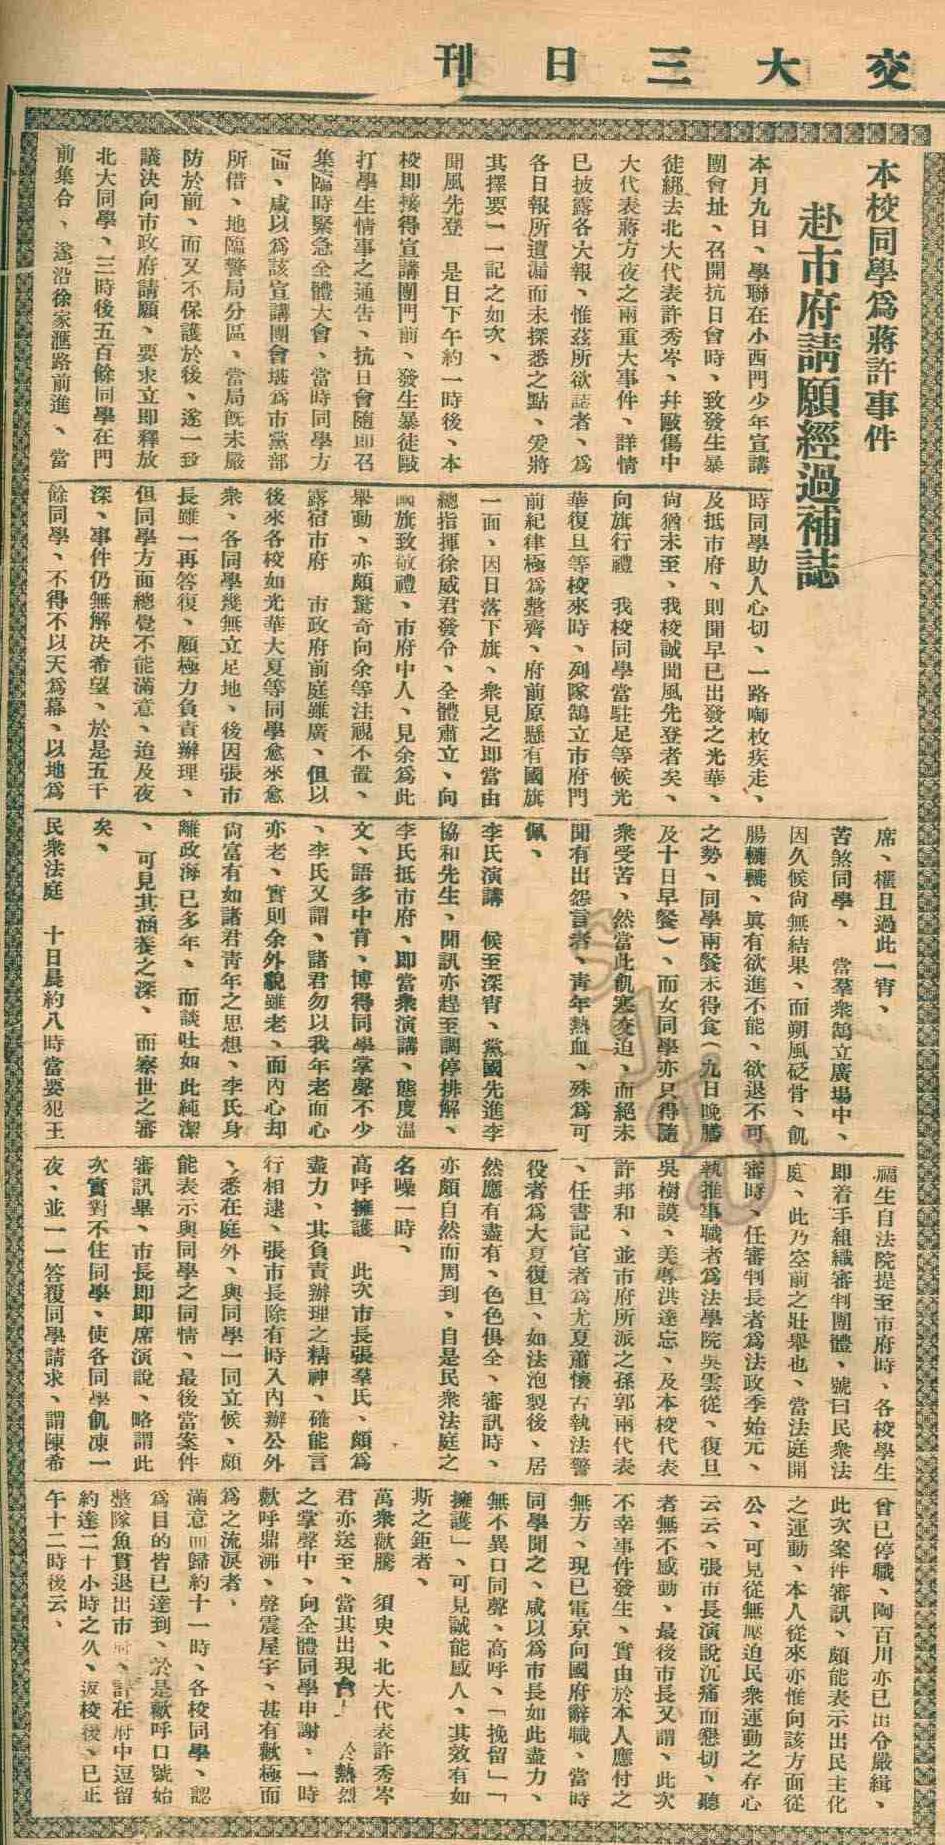 交大三日刊
本校同學爲蔣許事件
赴市府請願經過補誌
本月九日、學聯在小西門少年宣講
團會址、召開抗日會時、致發生暴
徒綁去北大代表許秀岑、幷毆傷中
大代表蔣方夜之兩重大事件、詳情
已披露各大報、惟茲所欲誌者、爲
各日報所遺漏而未探悉之點、爰將
其擇要一一記之如次、
聞風先登　是日下午約一時後、本
校即接得宣講團門前、發生暴徒毆
打學生情事之通告、抗日會隨即召
集臨時緊急全體大會、當時同學方
面、咸以爲該宣講團會塲爲市黨部
所借、地臨警局分區、當局旣未嚴
防於前、而又不保護於後、遂一致
議決向市政府請願、要求立即釋放
北大同學、三時後五百餘同學在門
前集合、遂沿徐家滙路前進、當
時同學助人心切、一路啣枚疾走、
及抵市府、則聞早已出發之光華、
尙猶未至、我校誠聞風先登者矣、
向旗行禮　我校同學當駐足等候光
華復旦等校來時、列隊鵠立市府門
前紀律極爲整齊、府前原懸有國旗
一面、因日落下旗、衆見之即當由
總指揮徐威君發令、全體肅立、向
國旗致敬禮、市府中人、見余爲此
舉動、亦頗驚奇向余等注視不置、
露宿市府　市政府前庭雖廣、但以
後來各校如光華大夏等同學愈來愈
衆、各同學幾無立足地、後因張市
長雖一再答復、願極力負責辦理、
但同學方面總覺不能滿意、迨及夜
深、事件仍無解决希望、於是五千
餘同學、不得不以天爲幕、以地爲
席、權且過此一宵、
苦煞同學、　當羣衆鵠立廣場中、
因久候尙無結果、而朔風砭骨、飢
腸轆轆、眞有欲進不能、欲退不可
之勢、同學兩餐未得食（九日晚膳
及十日早餐）、而女同學亦只得隨
衆受苦、然當此飢寒交迫、而絕未
聞有出怨言者、靑年熱血、殊爲可
佩、
李氏演講　候至深宵、黨國先進李
協和先生、聞訊亦趕至調停排解、
李氏抵市府、即當衆演講、態度溫
文、語多中肯、博得同學掌聲不少
、李氏又謂、諸君勿以我年老而心
亦老、實則余外貌雖老、而內心却
尙富有如諸君靑年之思想、李氏身
離政海已多年、而談吐如此純潔
、可見其涵養之深、而察世之審
矣、
民衆法庭　十日晨約八時當要犯王
福生自法院提至市府時、各校學生
即着手組織審判團體、號曰民衆法
庭、此乃空前之壯舉也、當法庭開
審時、任審判長者爲法政季始元、
執推事職者爲法學院吳雲從、復旦
吳樹謨、美專洪達忘、及本校代表
許邦和、並市府所派之孫郭兩代表
、任書記官者爲尤夏蕭懷古執法警
役者爲大夏復旦、如法泡製後、居
然應有盡有、色色俱全、審訊時、
亦頗自然而周到、自是民衆法庭之
名噪一時、
高呼擁護　此次市長張羣氏、頗爲
盡力、其負責辦理之精神、確能言
行相逮、張市長除有時入內辦公外
、悉在庭外、與同學一同立候、頗
能表示與同學之同情、最後當案件
審訊畢、市長即即席演說、略謂此
次實對不住同學、使各同學飢凍一
夜、並一一答復同學請求、謂陳希
曾已停職、陶百川亦已出令嚴緝、
此次案件審訊、頗能表示出民主化
之運動、本人從來亦惟向該方面從
公、可見從無壓迫民衆運動之存心
云云、張市長演說沉痛而懇切、聽
者無不感動、最後市長又謂、此次
不幸事件發生、實由於本人應付之
無方、現已電京向國府辭職、當時
同學聞之、咸以爲市長如此盡力、
無不異口同聲、高呼、「挽留」「
擁護」、可見誠能感人、其效有如
斯之鉅者、
萬衆歡騰　須臾、北大代表許秀岑
君亦送至、當其出現台上　於熱烈
之掌聲中、向全體同學申謝、一時
歡呼鼎沸、聲震屋宇、甚有歡極而
爲之流淚者、
滿意而歸約十一時、各校同學、認
爲目的皆已達到、於是歡呼口號始
整隊魚貫退出市府、計在府中逗留
約達二十小時之久、返校後、已正
午十二時後云、